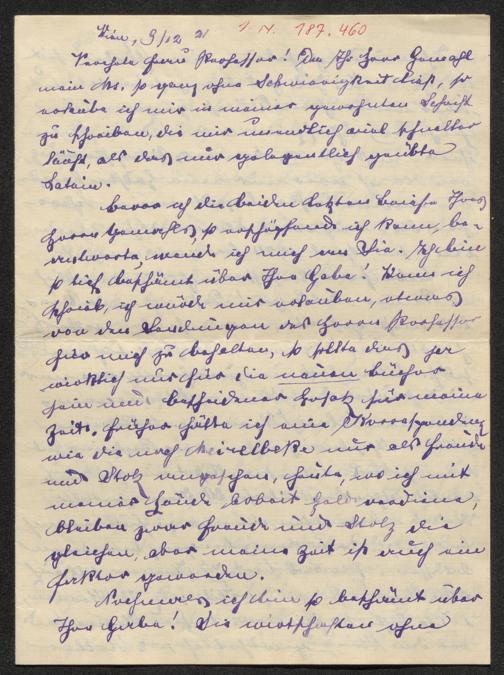 Wien, 9/12 21 I. N. 187.460
Verehrte Frau Professor! Da Ihr Herr Gemahl
mein Ms. so ganz ohne Schwierigkeit liest, so
erlaube ich mir in meiner gewohnten Schrift
zu schreiben, die mir unendlich viel schneller
läuft, als das nur gelegentlich geübte
Latein.
Bevor ich die beiden letzten Briefe Ihres
Herrn Gemahls, so erschöpfend ich kann, be-
antworte, wende ich mich an Sie. Ich bin
so tief beschämt über Ihre Gabe! Wenn ich
schrieb, ich würde mir erlauben, etwas
von den Sendungen des Herrn Professor
für mich zu behalten, so sollte dies ja
wirklich nur für die neuen Bücher
sein und bescheidener Ersatz für meine
Zeit. Früher hätte ich eine Korrespondenz
wie die nach Meirelbeke nur als Freude
und Stolz angesehen, heute, wo ich mit
meiner Hände Arbeit Geld verdiene,
bleiben zwar Freude und Stolz die
gleichen, aber meine Zeit ist auch ein
Faktor geworden.
Nochmals ich bin so beschämt über
Ihre Gabe! Sie wirtschaften ohne